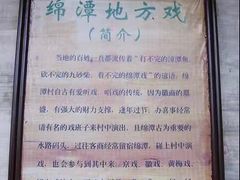 绵潭地方戏
(简介)
当地的百姓,真都流传着“打不完的漳潭鱼,
砍不完的九砂柴,看不完的绵潭戏”的谚语,绵
潭村自古有爱听戏、唱戏的传统,因为徽商的鼎
盛,有强大的财力支撑,逢年过节、办喜事经常
请有名的戏班子来村中演出,且绵潭古为重要的
水路码头,过往客商经常留宿绵潭,碰上村中演
戏,也会参与到其中来,京戏、徽戏、黄梅戏